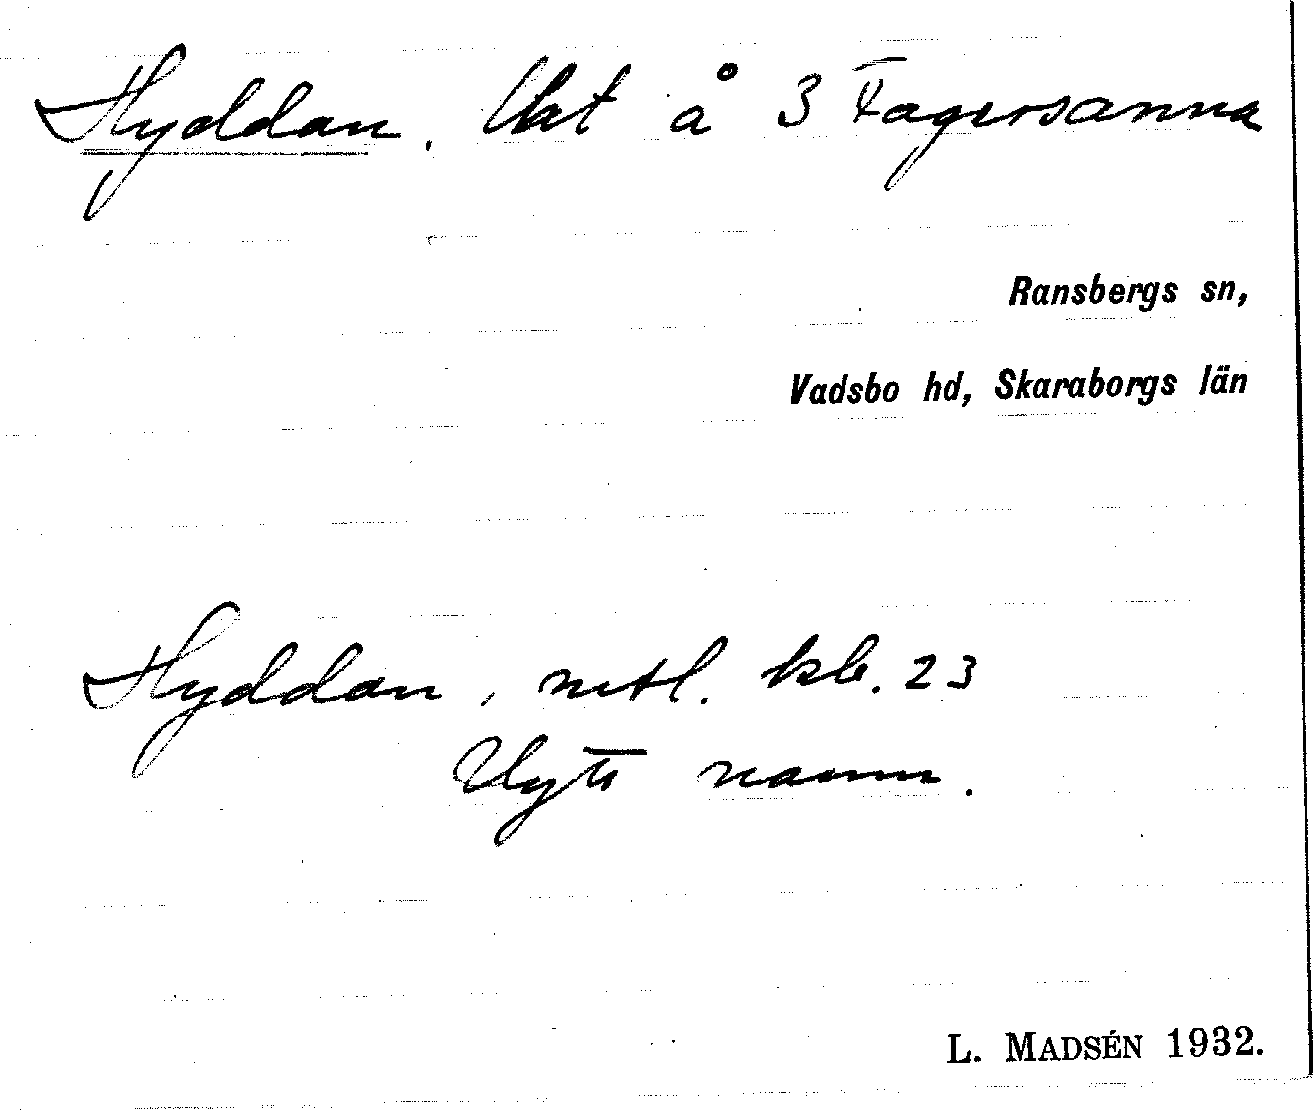 Hyddan. Uat å 3 Fagersanna
Ransbergs sn,
Vadsbo hd, Skaraborgs län
Hyddan, mtl. kb. 23
Nytt namn.
L. MADSÉN 1932.